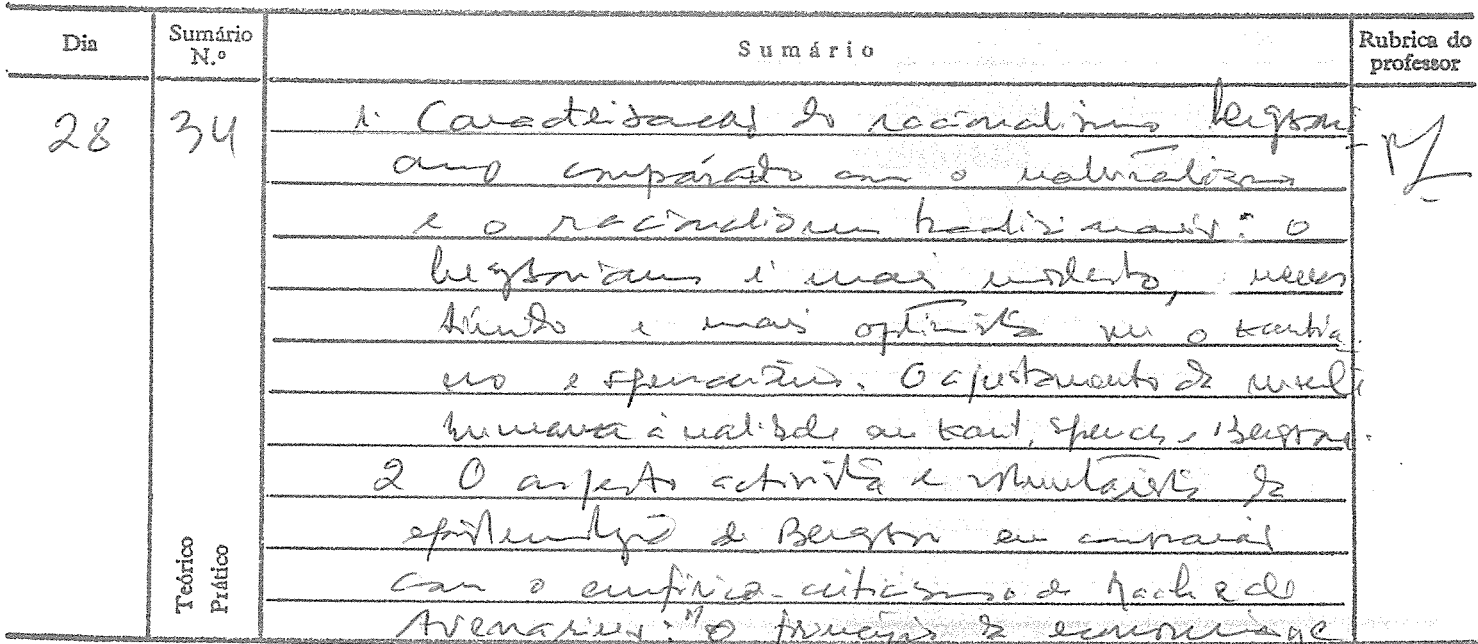 Dia
Sumário N.º
Sumário
Rubrica do professor
28
34
1. Caracterização do racionalismo bergsoni-
ano comparado com o naturalismo
e o racionalismo tradicionais: o
bergsoniano é mais modesto, menos
e mais optimista que o kantia-
no e spenceriano. O ajustamento da
humana à realidade em Kant, Spencer e Bergson.
2 O aspecto activista e voluntarista da
epistemologia de Bergson em comparação
com o empírico-criticismo de Mach e de
Avenarius: "o princípio da economia
Teórico
Prático